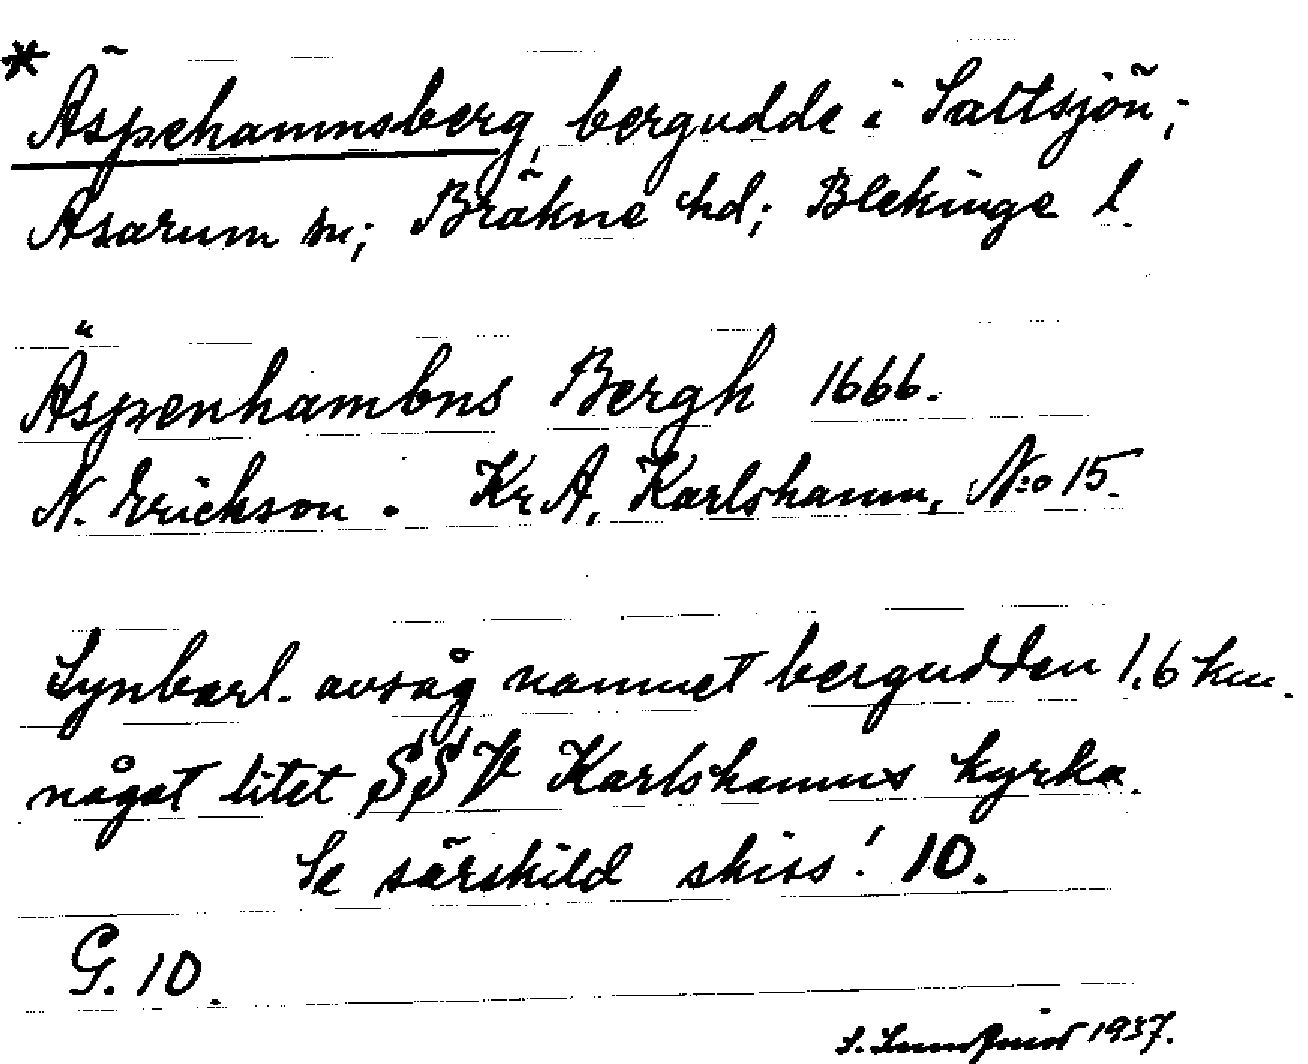 * Äspehamnsberg, bergudde i Saltsjön;
Asarum sn; Bräkne hd; Blekinge l.
Äspenhambns Bergh 1666.
N. Erickson. Kr A, Karlshamn, N:o 15.
Synbarl. avsåg namnet bergudden 1,6 km.
något litet SSV Karlshamns kyrka.
Se särskild skiss! 10.
G. 10.
S. Lundqvist 1937.